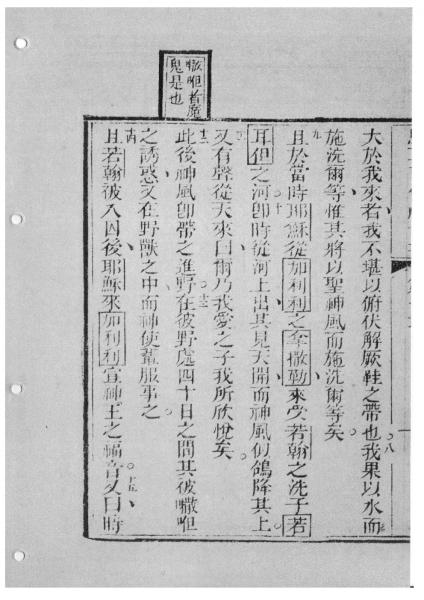 㘔呾者魔
鬼是也
大於我來者我不堪以俯伏解厥鞋之帶也八我果以水而
施洗爾等惟其將以聖神風而施洗爾等矣
九且於當時耶穌從加利利之拿撒勒來受若翰之洗于若
耳但之河十卽時從河上出其見天開而神風似鴿降其上
十一又有聲從天來曰爾乃我愛之子我所欣悅矣
十二此後神風卽帶之進野十三在彼野處四十日之間其被㘔呾
之誘惑又在野獸之中而神使輩服事之
十四且若翰被入囚後耶穌來加利利宣神王之福音十五又曰時